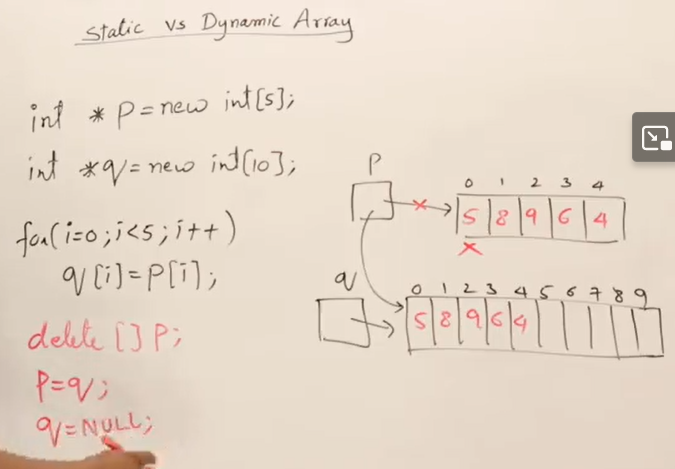 Static vs Dynamic Array
int * P = new int[5];
int *q = new int[10];
for(i=0; i<5; i++)
q[i] = P[i];
delete [] P;
P = q;
q = NULL;
P
0 1 2 3 4
5 8 9 6 4
q
0 1 2 3 4 5 6 7 8 9
5 8 9 6 4